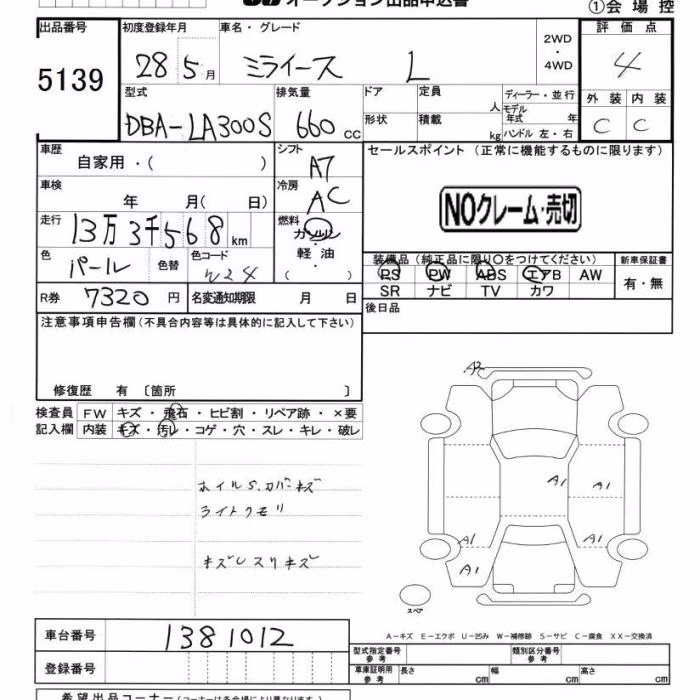 オークション出品申込書
①会場控
出品番号
5139
初度登録年月
28 5月
車名・グレード
ミライース L
2WD
・
4WD
評価点
4
型式
DBA-LA300S
排気量
660 cc
ドア
定員
人
ディーラー・並行
モデル
年式 年
形状
積載
kg
ハンドル 左・右
外装 内装
C C
車歴
自家用・( )
シフト
A7
セールスポイント(正常に機能するものに限ります)
車検
年 月( 日)
冷房
AC
NOクレーム・売切
走行
13万3千568km
燃料
ガソリン
・
軽油
・
( )
色
パール
色替
色コード
W24
装備品(純正品に限り○をつけてください)
新車保証書
PS PW ABS エアB AW
SR ナビ TV カワ
有・無
R券
7320円
名変通知期限 月 日
後日品
注意事項申告欄(不具合内容等は具体的に記入して下さい)
修復歴 有〔箇所 〕
検査員
記入欄
FW キズ・飛石・ヒビ割・リペア跡・×要
内装 キズ・汚レ・コゲ・穴・スレ・キレ・破レ
ホイルS.カバーキズ
ライトクモリ
キズレスリキズ
A2
A1
A1
A1
A1
A1
スペア
A-キズ E-エクボ U-凹み W-補修跡 S-サビ C-腐食 XX-交換済
車台番号
1381012
登録番号
型式指定番号
参考
類別区分番号
参考
車庫証明用
参考
長さ cm
幅 cm
高さ cm
希望出品コーナー(コーナーは会場により異なります。)